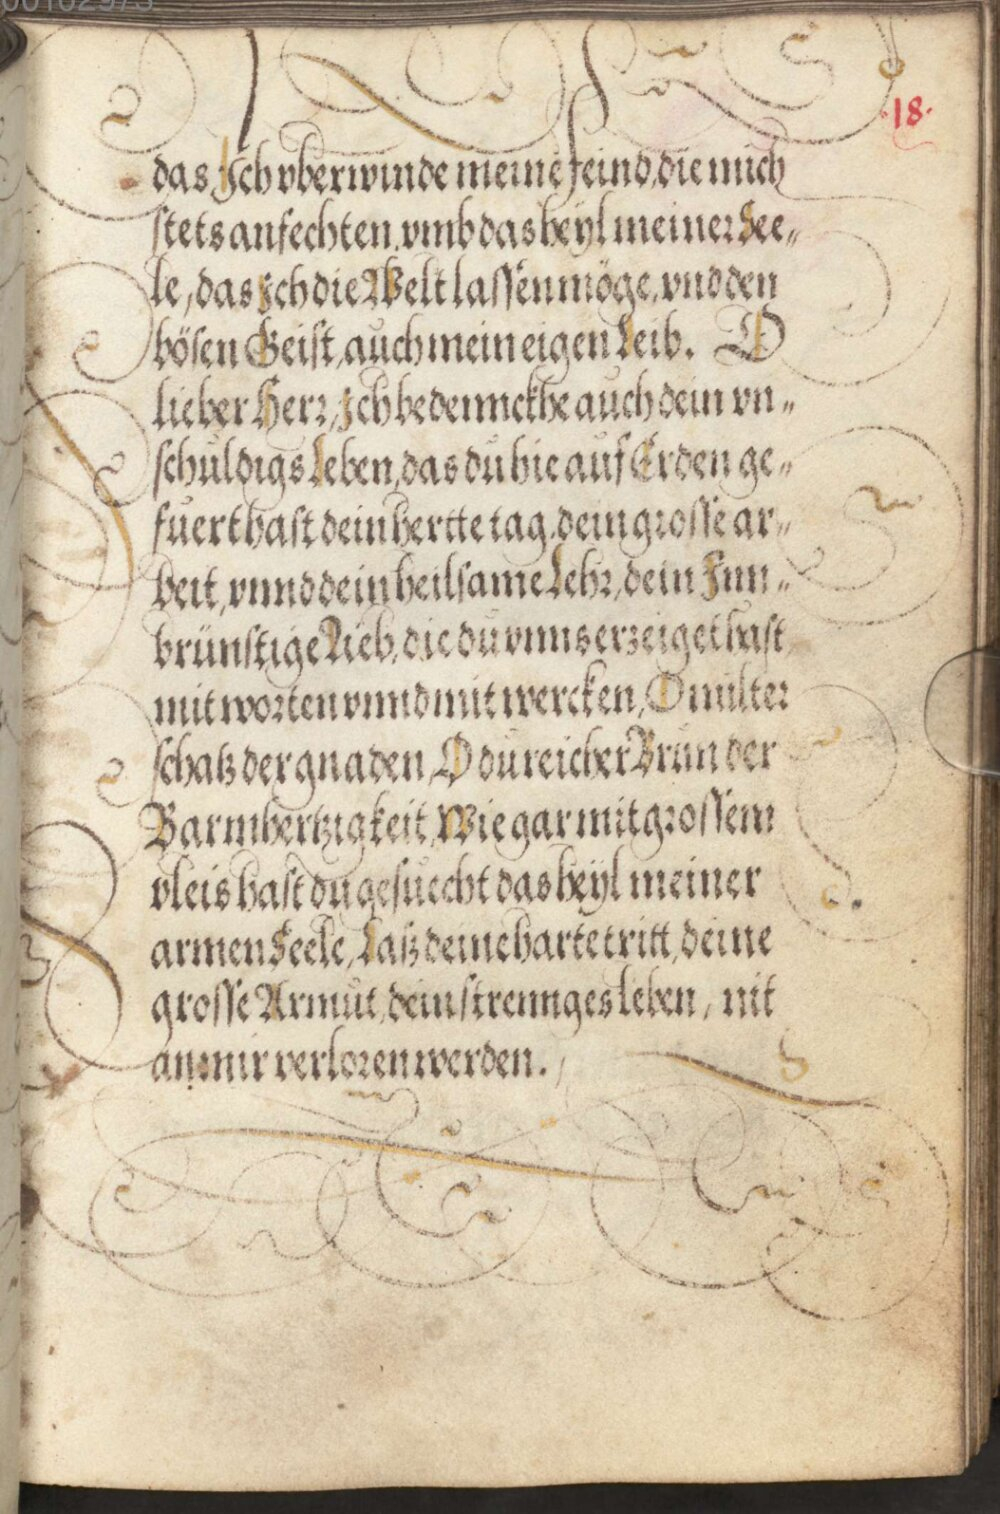 18.
das Ich vberwinde meine feind, die mich
stets anfechten, vmb das heÿl meiner See„
le, das Ich die Welt lassen möge, vnd den
bösen Geist, auch mein eigen Leib. O
lieber Herr, Ich bedennckhe auch dein vn„
schuldigs Leben, das du hie auf Erden ge„
fuert hast dein hertte tag, dein grosse ar„
beit, vnnd dein heilsame Lehr, dein Inn„
brünstige Lieb, die du vnns erzeiget hast
mit worten vnnd mit wercken, O milter
schatz der gnaden, O du reicher Brun der
Barmhertzigkeit, Wie gar mit grossem
vleis hast du gesuecht das heÿl meiner
armen Seele, Laß deine harte tritt, deine
grosse Armut, dein strennges leben, nit
an mir verloren werden.